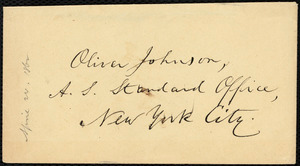 Oliver Johnson,
A. S. Standard Office,
New York City.
April 24.